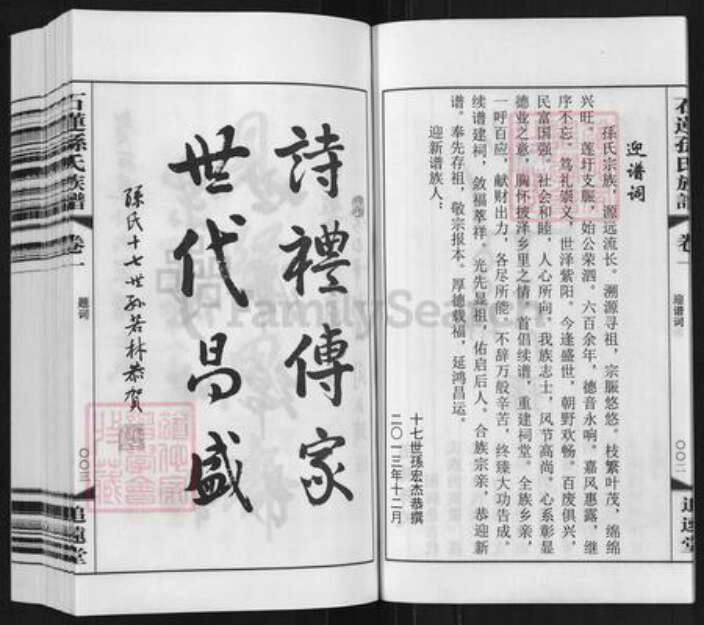 石莲孙氏族谱
卷一
迎谱词
〇〇二
追远堂
迎谱词
孙氏宗族，源远流长。溯源寻祖，宗脤悠悠。枝繁叶茂，绵绵
兴旺。莲圩支脤，始公荣泗。六百余年，德音永响。嘉风惠露，继
序不忘。笃礼崇义，世泽紫阳。今逢盛世，朝野欢畅。百废俱兴，
民富国强。社会和睦，人心所向。我族志士，风节高尚。心系彰显
德业之意，胸怀披泽乡里之情。首倡续谱，重建祠堂。全族乡亲，
一呼百应，献财出力，各尽所能。不辞万般辛苦，终臻大功告成。
续谱建祠，敛福萃祥。光先显祖，佑启后人。合族宗亲，恭迎新
谱。奉先存祖，敬宗报本。厚德载福，延鸿昌运。
迎新谱族人：
十七世孫宏杰恭撰
二〇一三年十二月
詩禮傳家
世代昌盛
孫氏十七世孙若林恭贺
石蓮孫氏族譜
卷一
题词
〇〇三
追遠堂
FamilySearch